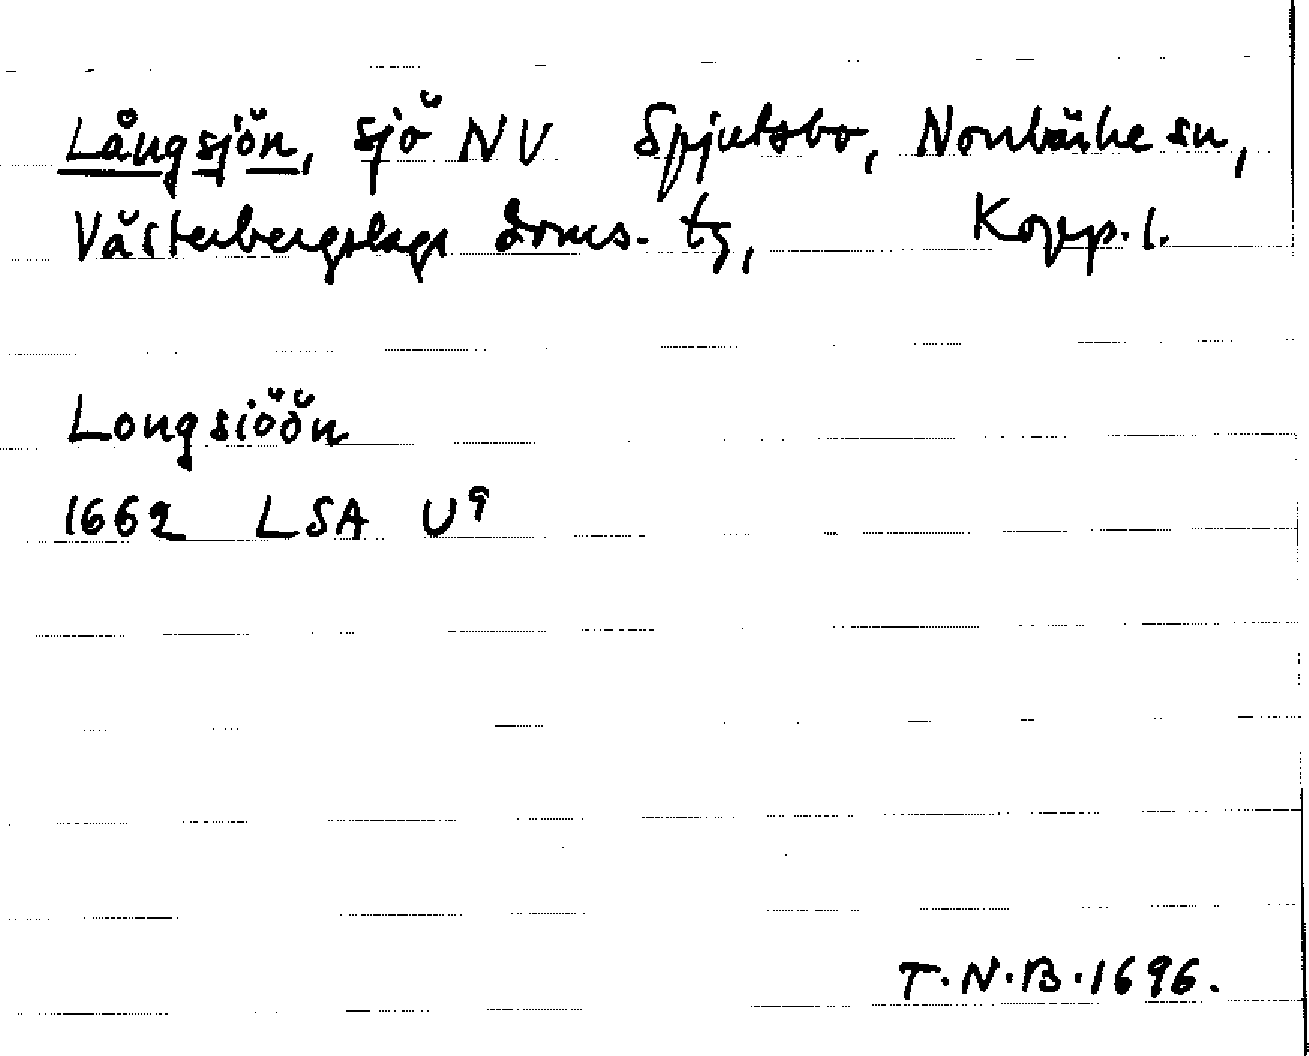 Långsjön, sjö NV Spjutsbo, Norrbärke sn,
Västerbergslags doms. tg, Kopp. l.
Longsiöön
1662 LSA U9
T.N.B.1696.